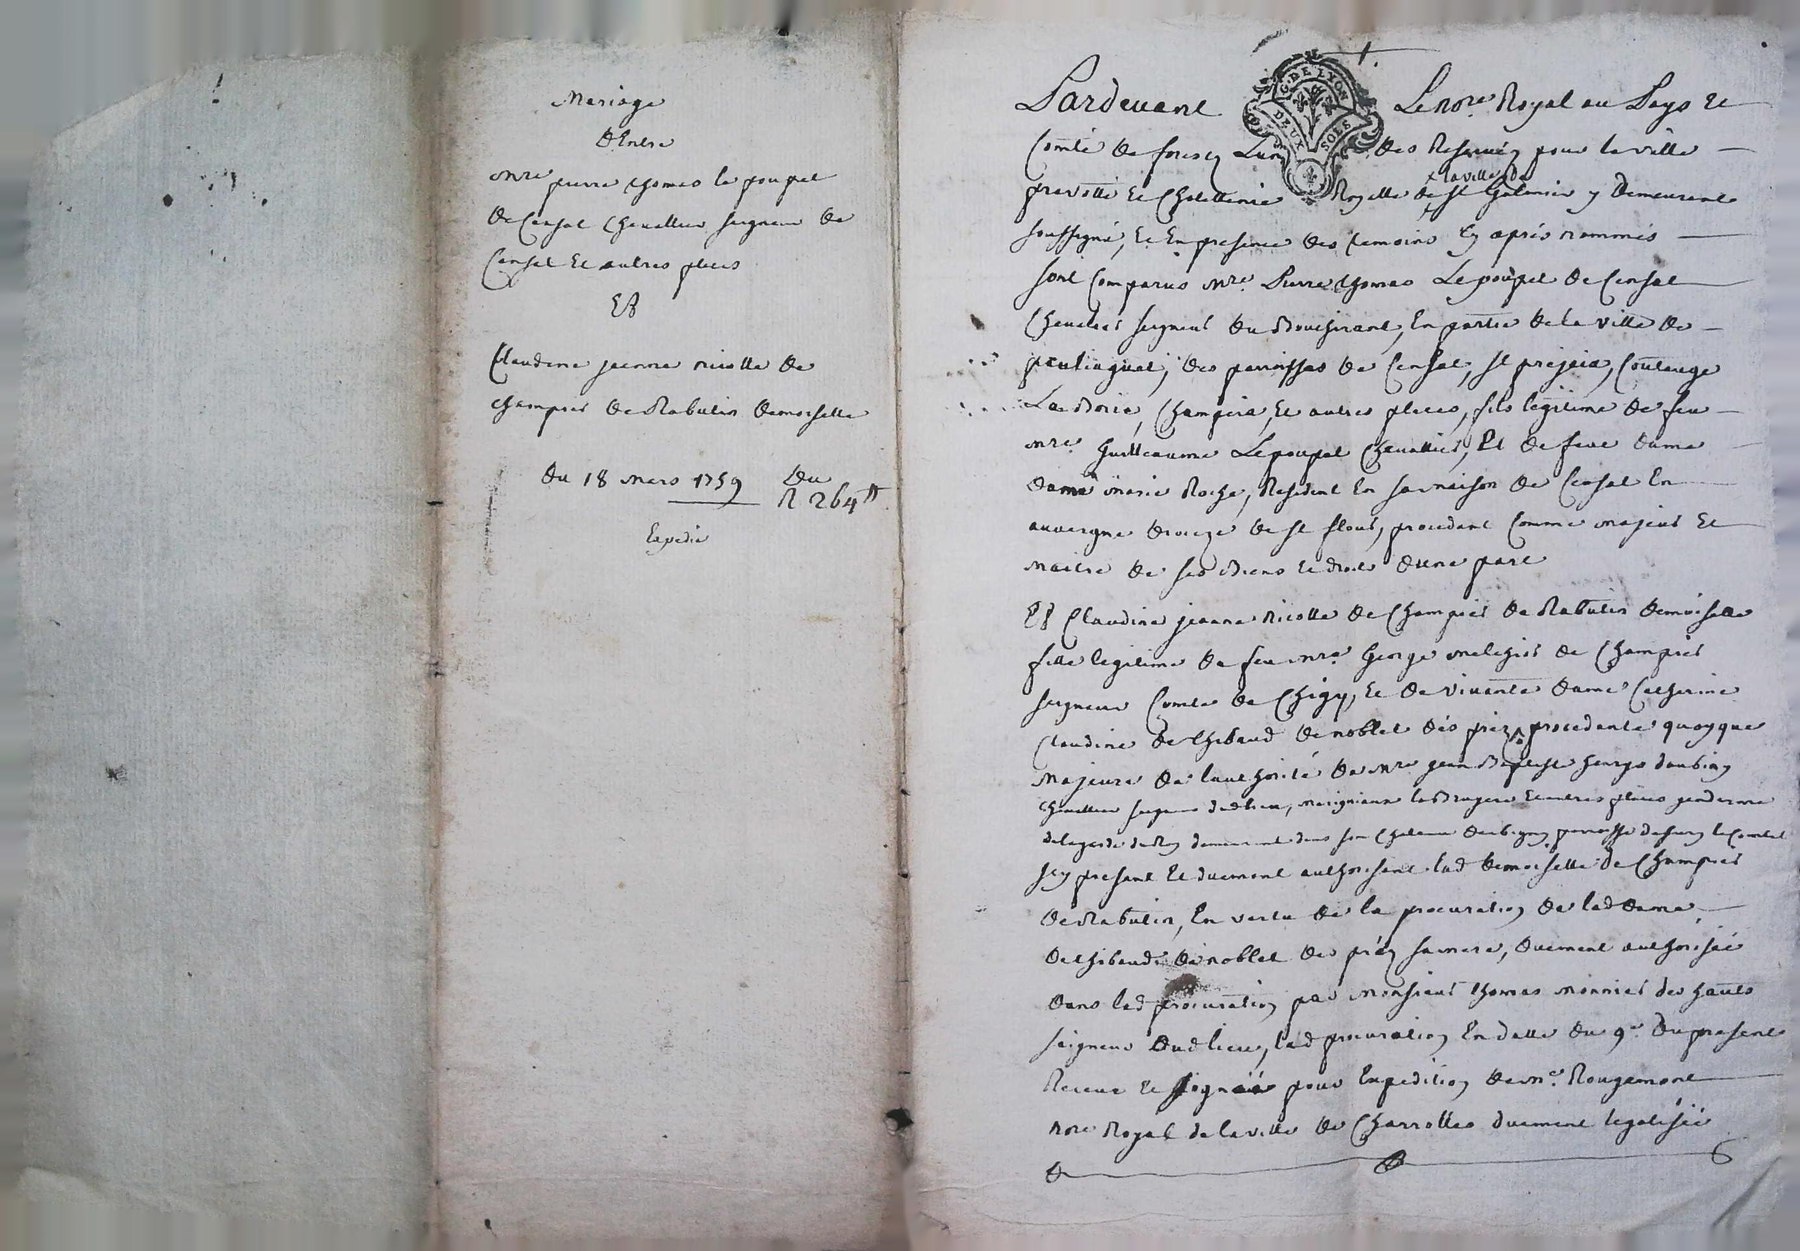 Mariage
D'Entre
Mre pierre thomas le poupet
De Censat Chevallier seigneur de
Censat Et autres places
Et
Claudine jeanne nicolle de
Champier De Rabutin Demoiselle
Du 18 mars 1759
Du
R 264tt
Expedié
G. DE LYON
DEUX SOLS
Pardevant Le Nore Royal au Pays Et
Comté de forest L'un des Reservéz pour la ville
la ville de
prevotté Et Chatellenie Royalle de St Galmier y Demeurant
soussigné, Et En presence des temoins Cy après nommés
sont Comparus Mre Pierre thomas Le poupet de Censat
Chevalier seigneur du Bouchirant, En partie de la ville de
paulhaguet, des parroisses de Censat, St prejeia, Couteuge
La Borie, Et autres places, fils légitime de feu
Mre Guilleaume Le poupet Chevallier, Et de feue dame
dame marie Roche, Resident En sa maison de Censat En
auvergne dioceze de St flour, procedant Comme majeur Et
maitre de ses Biens Et droits d'une part
Et Claudine jeanne nicolle de Champier de Rabutin demoiselle
fille legitime de feu Mre George melchior de Champier
seigneur Comte de Chigy, Et de vivante dame Catherine
Claudine de thibaud de noblet dés préz procedante quoyque
majeure de l'authorité de Mre jean Baptiste George daubigny
Chevallier seigneur dudt lieu, la Bruyere Et autres places gendarme
de la garde du Roy demeurant dans son Chateau daubigny parroisse de Sury le Comtal
icy present Et duement authorisant lad demoiselle de Champier
de Rabutin, En vertu de la procuration de lad dame
de thibaud de noblet des préz sa mere, duement authorisée
dans lad procuration par Monsieur thomas monnier des hauts
seigneur dud lieu, lad procuration En datte du 9e du present
Receue Et signée pour Expedition de Me Rougemont
Nore Royal de la ville de Charrolles duement legalisée